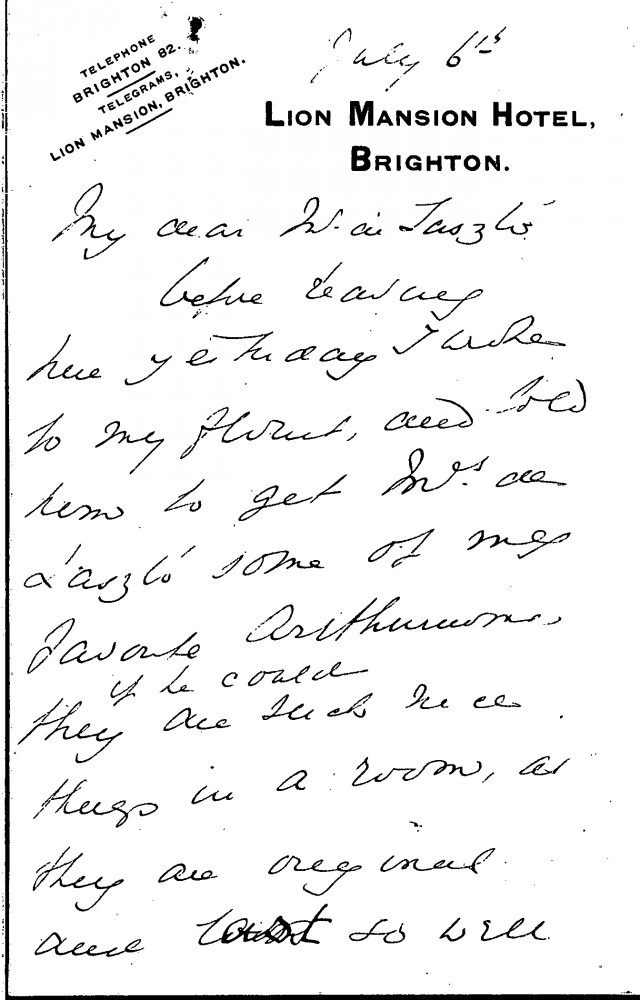 TELEPHONE
BRIGHTON 82.
TELEGRAMS,
LION MANSION, BRIGHTON.
July 6th
LION MANSION HOTEL,
BRIGHTON.
My dear Mr. de László
before leaving
here yesterday I wrote
to my florist, and told
him to get Mrs. de
László some of my
favorite
if he could
they are such nice
things in a room, as
they are original
and last so well